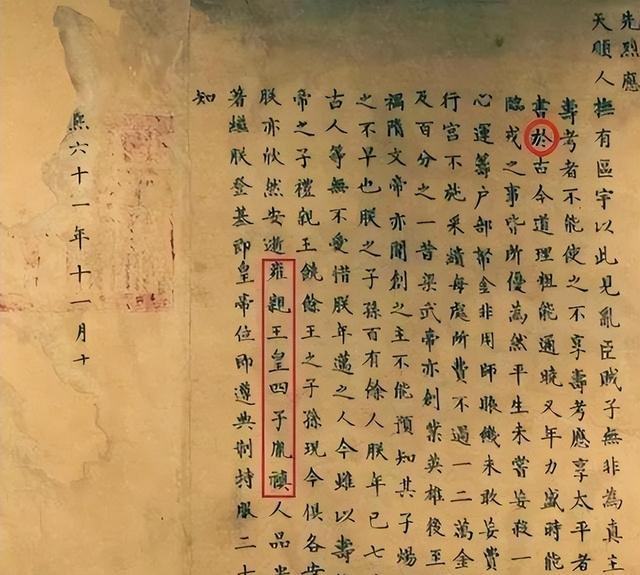 先烈應
天順人撫有區宇以此見亂臣賊子無非為真主
壽考者不能使之不享壽考應享太平者
書於古今道理粗能通曉又年力盛時能
臨戎之事皆所優為然平生未嘗妄殺一
心運籌户部帑金非用師賑饑未敢妄費
行宮不施采繢每處所費不過一二萬金
及百分之一昔梁武帝亦創業英雄後至
禍隋文帝亦開創之主不能預知其子煬
之不早也朕之子孫百有餘人朕年已七
古人等無不愛惜朕年邁之人今雖以壽
帝之子禮親王饒餘王之子孫現今俱各安
朕亦欣然安逝雍親王皇四子胤禛人品
著繼朕登基即皇帝位即遵典制持服二十
知
熙六十一年十一月十